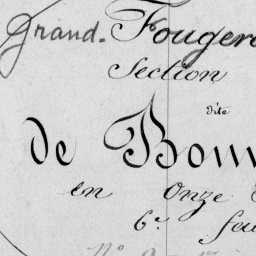 Grand-Fouger
Section
dite
de Bou
en Onze
6e feu
No